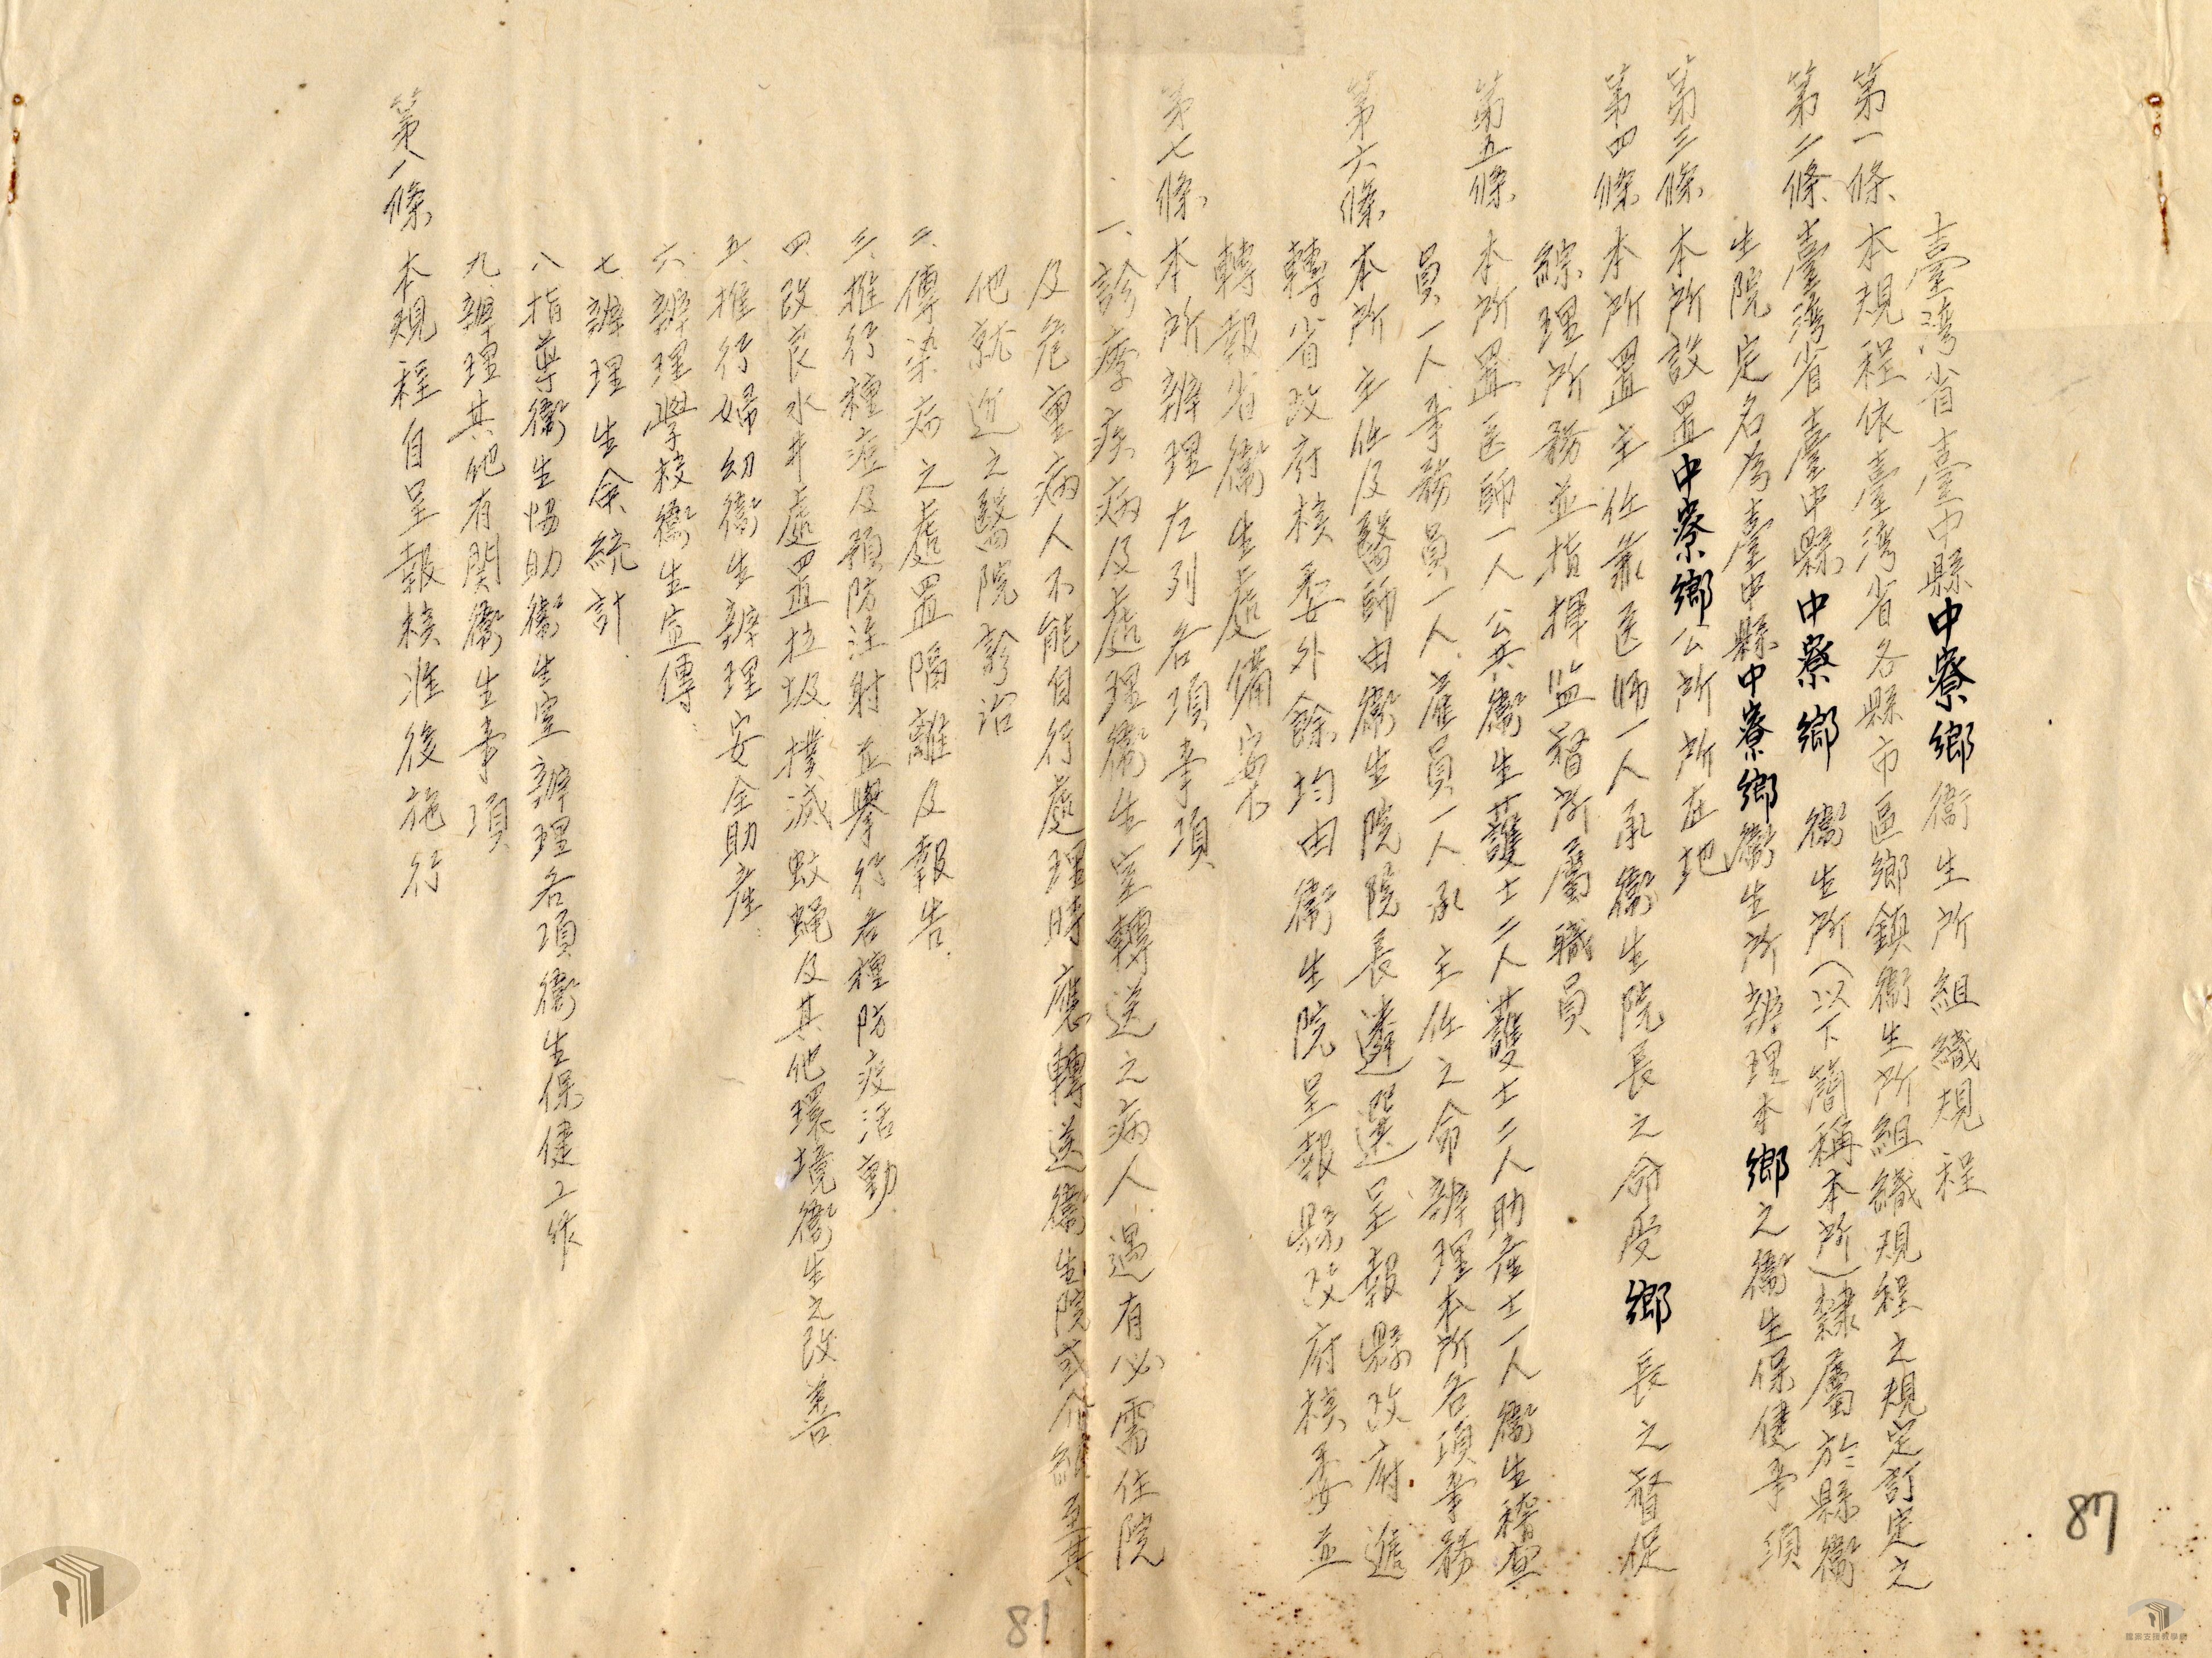 臺灣省臺中縣中寮鄉衞生所組織規程
第一條 本規程依臺灣省各縣市區鄉鎮衞生所組織規程之規定訂定之
第二條 臺灣省臺中縣中寮鄉衞生所(以下簡稱本所)隸屬於縣衞
生院定名為臺中縣中寮鄉衞生所辦理本鄉之衞生保健事項
第三條 本所設置中寮鄉公所所在地
第四條 本所置主任兼医師一人承衞生院長之命受鄉長之督促
綜理所務並指揮監督所屬職員
第五條 本所置医師一人公共衞生護士二人護士二人助產士一人衞生稽查
員一人事務員一人雇員一人承主任之命辦理本所各項事務
第六條 本所主任及醫師由衞生院院長遴選呈報縣政府遞
轉省政府核委外餘均由衞生院呈報縣政府核委並
轉報省衞生處備案
第七條 本所辦理左列各項事項
一、診療疾病及處理衞生室轉送之病人遇有必需住院
及危重病人不能自行處理時應轉送衞生院或介紹至其
他就近之醫院診治
二、傳染病之處置隔離及報告
三、推行種痘及預防注射並舉行各種防疫活動
四、改良水井處置垃圾撲滅蚊蝇及其他環境衞生之改善
五、推行婦幼衞生辦理安全助產
六、辦理學校衞生宣傳
七、辦理生命統計
八、指導衞生協助衞生室辦理各項衞生保健工作
九、辦理其他有関衞生事項
第八條 本規程自呈報核准後施行
87
81
檔案支援教學網